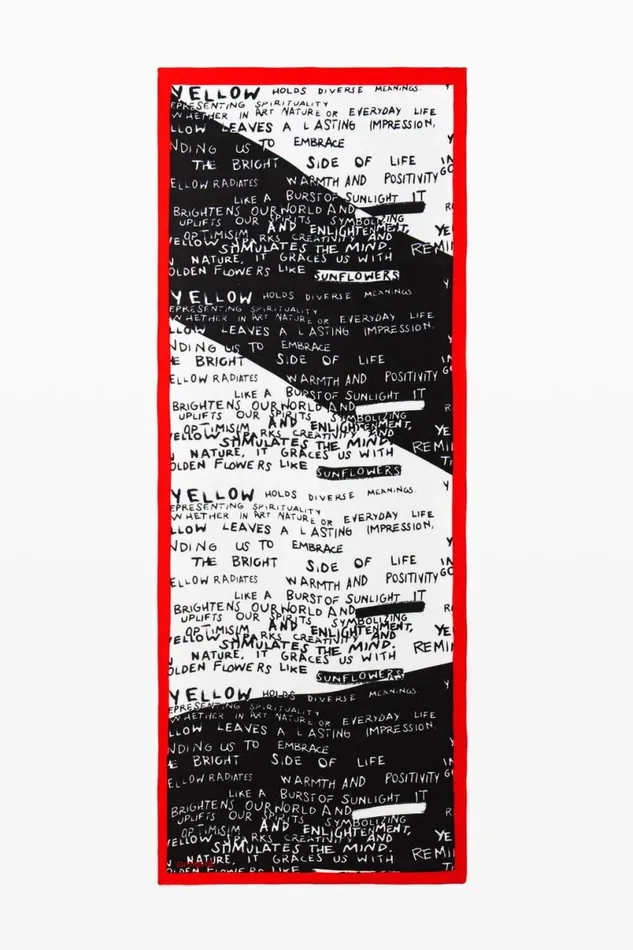 YELLOW HOLDS DIVERSE MEANINGS.
EPRESENTING SPIRITUALITY
WHETHER IN ART NATURE OR EVERYDAY LIFE
LLOW LEAVES A LASTING IMPRESSION, Y
NDING US TO EMBRACE
THE BRIGHT SIDE OF LIFE IN
ELLOW RADIATES WARMTH AND POSITIVITY GO
LIKE A BURST OF SUNLIGHT IT
BRIGHTENS OUR WORLD AND R
UPLIFTS OUR SPIRITS SYMBOLIZING
OPTIMISIM AND ENLIGHTENMENT, YE
YELLOW SPARKS CREATIVITY AND
STIMULATES THE MIND. REMI
N NATURE, IT GRACES US WITH
OLDEN FLOWERS LIKE SUNFLOWERS
YELLOW HOLDS DIVERSE MEANINGS.
EPRESENTING SPIRITUALITY
WHETHER IN ART NATURE OR EVERYDAY LIFE
LLOW LEAVES A LASTING IMPRESSION, Y
NDING US TO EMBRACE
E BRIGHT SIDE OF LIFE IN
ELLOW RADIATES WARMTH AND POSITIVITY GO
LIKE A BURST OF SUNLIGHT IT
BRIGHTENS OUR WORLD AND R
UPLIFTS OUR SPIRITS SYMBOLIZING
OPTIMISIM AND ENLIGHTENMENT, YE
YELLOW SPARKS CREATIVITY AND
STIMULATES THE MIND. REMI
N NATURE, IT GRACES US WITH T
OLDEN FLOWERS LIKE SUNFLOWERS
YELLOW HOLDS DIVERSE MEANINGS. Y
EPRESENTING SPIRITUALITY
WHETHER IN ART NATURE OR EVERYDAY LIFE
LLOW LEAVES A LASTING IMPRESSION, Y
NDING US TO EMBRACE
THE BRIGHT SIDE OF LIFE IN
ELLOW RADIATES WARMTH AND POSITIVITY GO
LIKE A BURST OF SUNLIGHT IT
BRIGHTENS OUR WORLD AND R
UPLIFTS OUR SPIRITS SYMBOLIZING
OPTIMISIM AND ENLIGHTENMENT, YE
YELLOW SPARKS CREATIVITY AND
STIMULATES THE MIND. REMI
N NATURE, IT GRACES US WITH
OLDEN FLOWERS LIKE SUNFLOWERS
YELLOW HOLDS DIVERSE MEANINGS. Y
EPRESENTING SPIRITUALITY
WHETHER IN ART NATURE OR EVERYDAY LIFE
LLOW LEAVES A LASTING IMPRESSION, Y
NDING US TO EMBRACE
E BRIGHT SIDE OF LIFE IN
ELLOW RADIATES WARMTH AND POSITIVITY GO
LIKE A BURST OF SUNLIGHT IT
BRIGHTENS OUR WORLD AND R
UPLIFTS OUR SPIRITS SYMBOLIZING
OPTIMISIM AND ENLIGHTENMENT, YE
YELLOW SPARKS CREATIVITY AND
STIMULATES THE MIND. REMI
N NATURE, IT GRACES US WITH
OLDEN FLOWERS LIKE